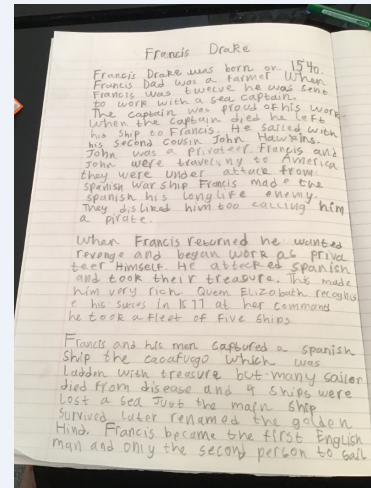 Francis Drake
Francis Drake was born on 1540.
Francis Dad was a farmer When
Francis was twelve he was sent
to work with a sea captain.
The captain was proud of his work
When the captain died he left
his ship to Francis. He sailed with
his second cousin John Hawkins.
John was a privateer Francis and
John were traveling to America
they were under attack from
spanish war ship Francis made the
spanish his longlife enemy.
They disliked him too calling him
a pirate.
When Francis returned he wanted
revenge and began work as priva
teer Himself. He attecked spanish
and took their treasure. This made
him very rich Queen Elizabath recognis
e his succes in 1577 at her command
he took a fleet of five ships
Francis and his men captured a spanish
ship the cacafuego which was
ladden with treasure but many sailor
died from disease and 4 ships were
lost a sea Just the main ship
survived later renamed the golden
Hind. Francis became the first English
man and only the second person to sail